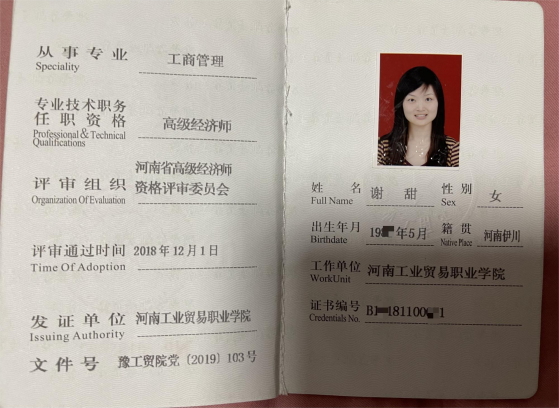 从事专业 工商管理
Speciality
专业技术职务
任职资格 高级经济师
Professional & Technical
Qualifications
河南省高级经济师
评审组织 资格评审委员会
Organization Of Evaluation
评审通过时间 2018年12月1日
Time Of Adoption
发证单位 河南工业贸易职业学院
Issuing Authority
文件号 豫工贸院党〔2019〕103号
姓名 谢甜 性别 女
Full Name Sex
出生年月 19 年5月 籍贯 河南伊川
Birthdate Native Place
工作单位 河南工业贸易职业学院
WorkUnit
证书编号 B 181100 1
Credentials No.